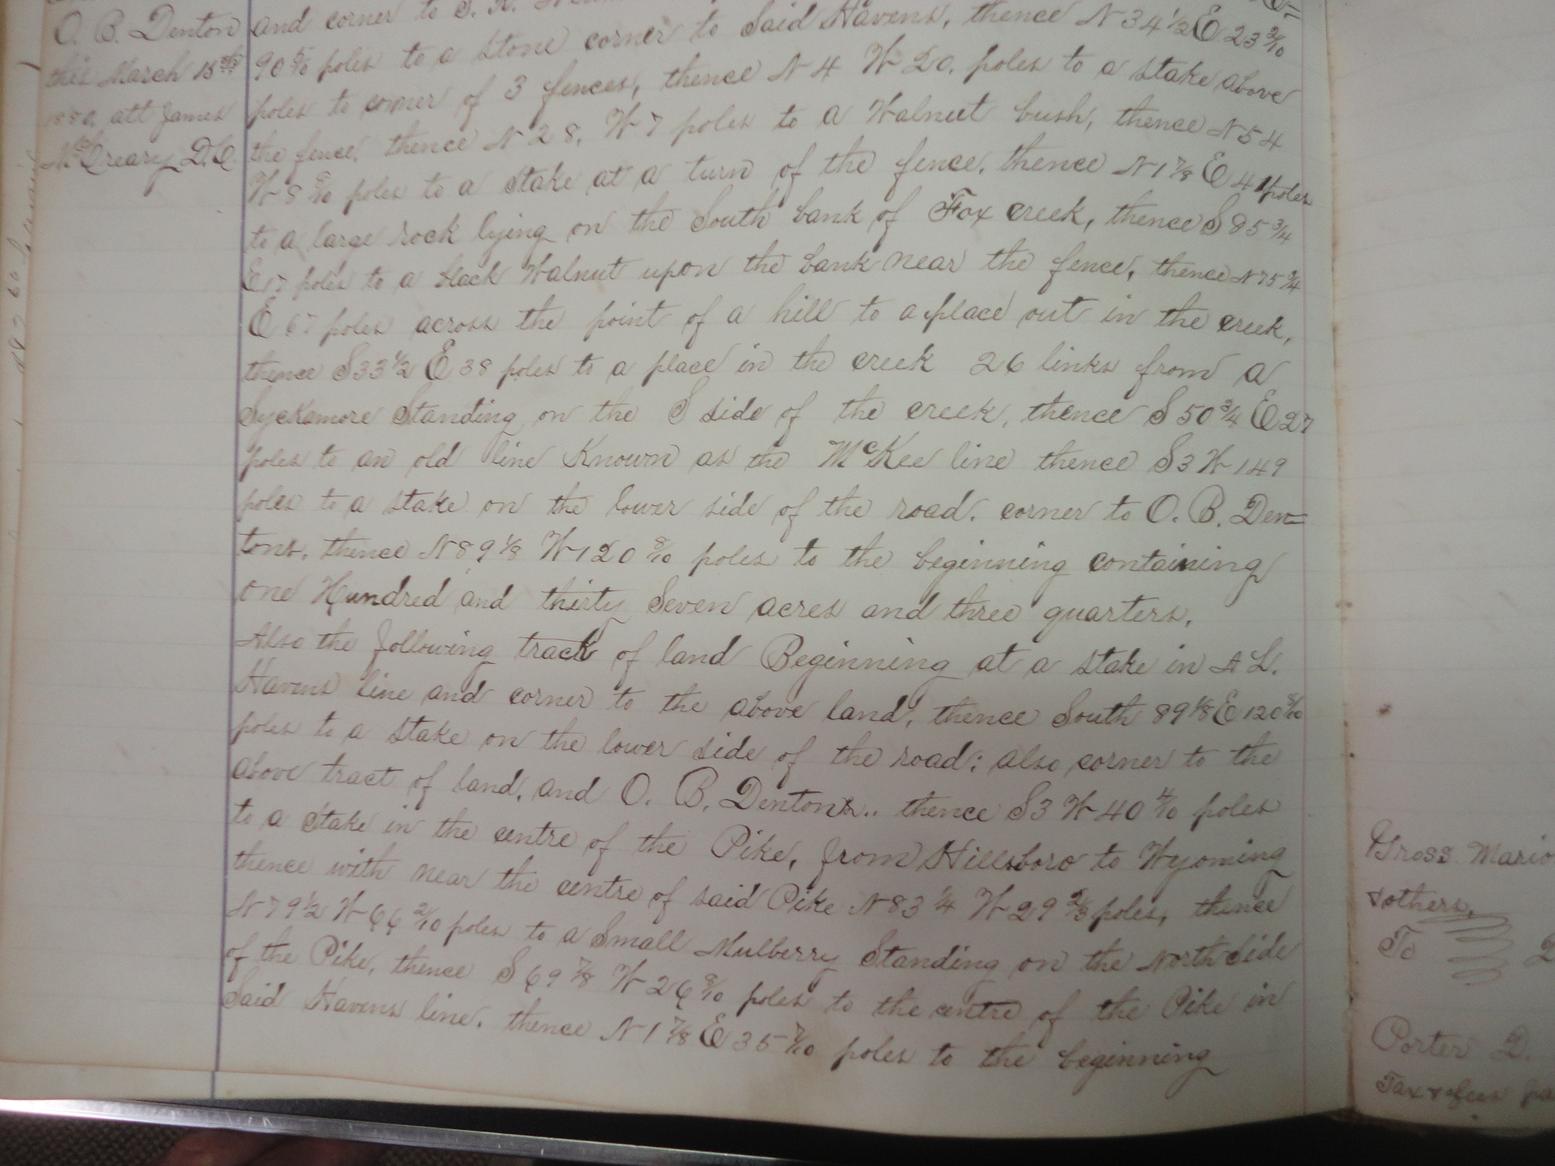 O. B. Denton
this March 15th
1880, att James
McCreary D.C.
and corner to S. H.
90 5/10 poles to a stone corner to Said Havens, thence N 34 1/2 E 23 3/10
poles to corner of 3 fences, thence N 4 W 20, poles to a stake above
the fence, thence N 28, W 7 poles to a Walnut bush, thence N 54
W 8 8/10 poles to a stake at a turn of the fence, thence N 1 7/8 E 41 poles
to a large rock lying on the South bank of Fox creek, thence S 85 3/4
E 17 poles to a black Walnut upon the bank near the fence, thence N 75 3/4
E 67 poles across the point of a hill to a place out in the creek,
thence S 33 1/2 E 38 poles to a place in the creek 26 links from a
Syckamore Standing on the S side of the creek, thence S 50 3/4 E 27
poles to an old line Known as the McKee line thence S 3 W 149
poles to a stake on the lower side of the road, corner to O. B. Den=
tons, thence N 89 1/8 W 120 8/10 poles to the beginning containing
one Hundred and thirty Seven acres and three quarters.
Also the following track of land Beginning at a stake in A L.
Havens line and corner to the above land, thence South 89 1/8 E 120 8/10
poles to a stake on the lower side of the road; also corner to the
above tract of land, and O. B. Dentons.. thence S 3 W 40 4/10 poles
to a stake in the centre of the Pike, from Hillsboro to Wyoming
thence with near the centre of said Pike N 83 1/4 W 29 2/3 poles, thence
N 79 1/2 W 66 2/10 poles to a Small Mulberry Standing on the North Side
of the Pike, thence S 69 7/8 W 26 9/10 poles to the centre of the Pike in
Said Havens line, thence N 1 7/8 E 35 7/10 poles to the beginning
Gross Mario
& others,
To
Porter D.
Tax & fees pa